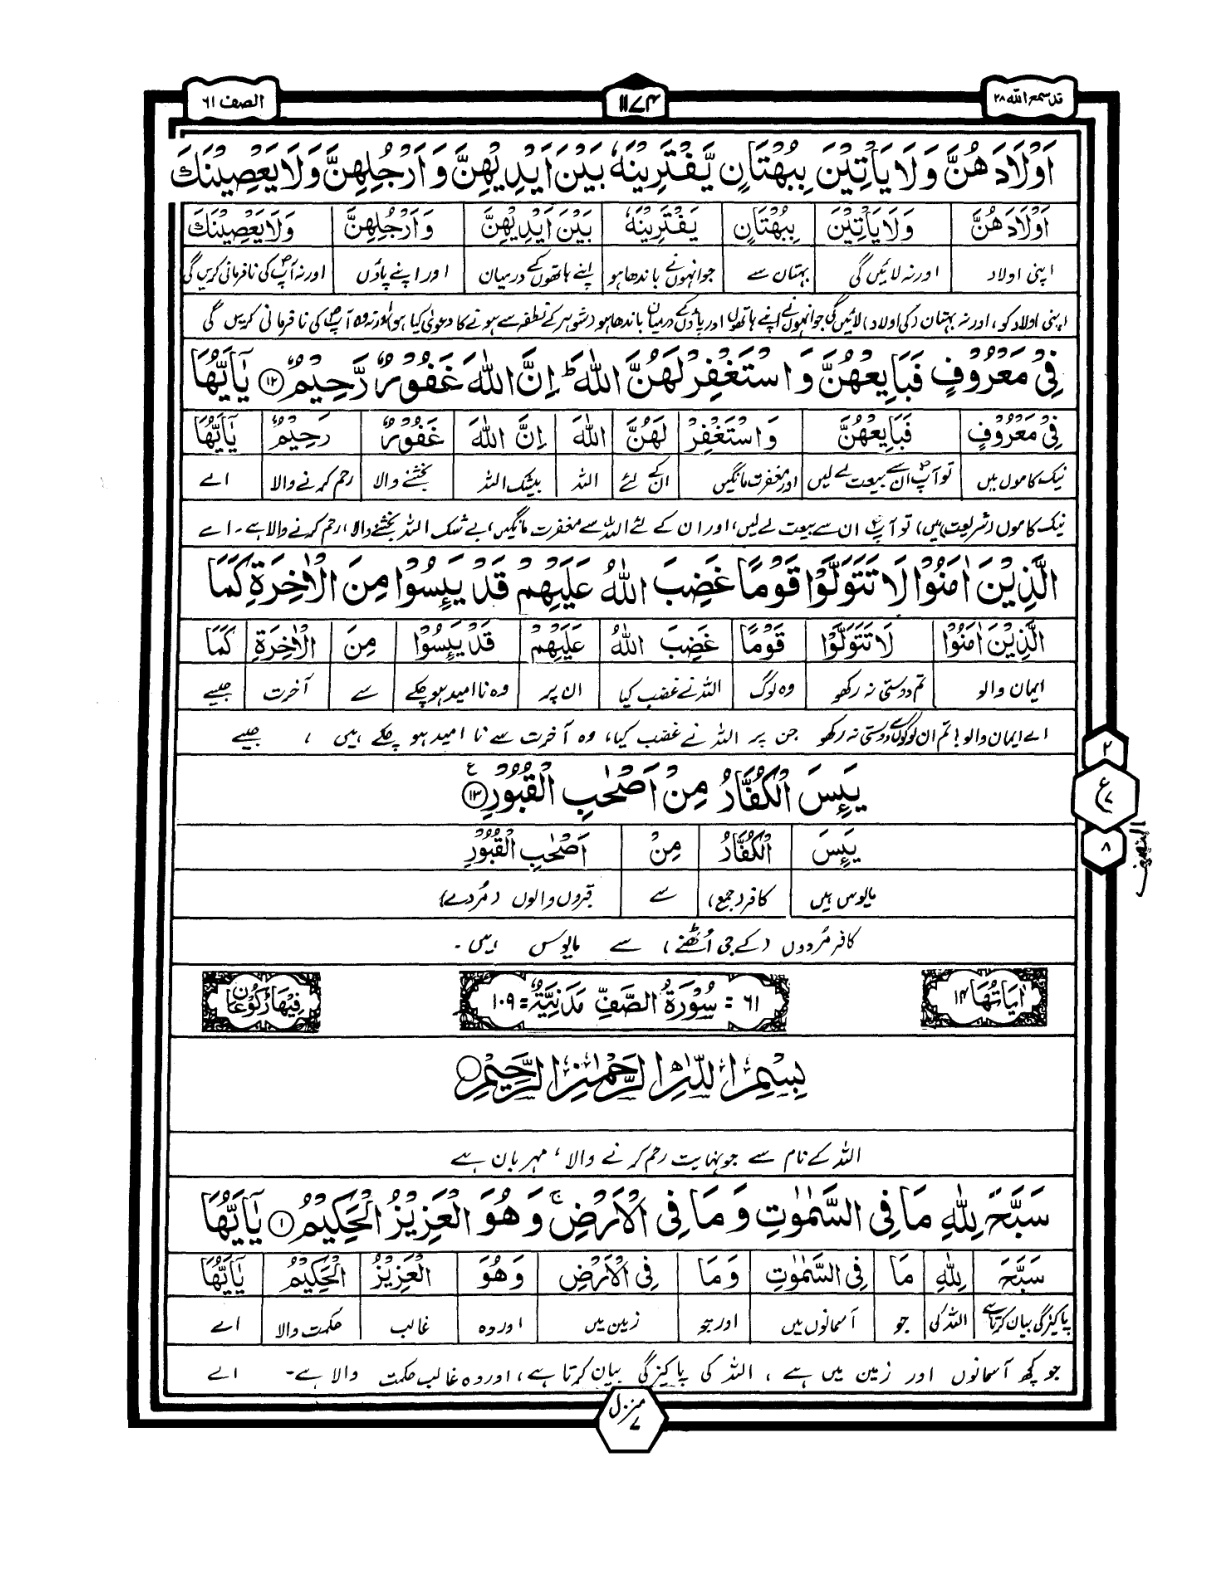 قد سمع اللہ ۲۸
۱۱۷۴
الصف ۶۱
اَوْلَادَهُنَّ وَلَا يَاْتِيْنَ بِبُهْتَانٍ يَّفْتَرِيْنَهٗ بَيْنَ اَيْدِيْهِنَّ وَاَرْجُلِهِنَّ وَلَا يَعْصِيْنَكَ
اَوْلَادَهُنَّ وَلَا يَاْتِيْنَ بِبُهْتَانٍ يَفْتَرِيْنَهٗ بَيْنَ اَيْدِيْهِنَّ وَاَرْجُلِهِنَّ وَلَا يَعْصِيْنَكَ
اپنی اولاد اور نہ لائیں گی بہتان سے جو انہوں نے باندھا ہو اپنے ہاتھوں کے درمیان اور اپنے پاؤں اور نہ آپؐ کی نافرمانی کریں گی
اپنی اولاد کو، اور نہ بہتان (کی اولاد) لائیں گی جو انہوں نے اپنے ہاتھوں اور پاؤں کے درمیان باندھا ہو (شوہر کے نطفہ سے ہونے کا دعویٰ کیا ہو) اور نہ وہ آپؐ کی نافرمانی کریں گی
فِيْ مَعْرُوْفٍ فَبَايِعْهُنَّ وَاسْتَغْفِرْ لَهُنَّ اللّٰهَ ؕ اِنَّ اللّٰهَ غَفُوْرٌ رَّحِيْمٌ ۝۱۲ يٰۤاَيُّهَا
فِيْ مَعْرُوْفٍ فَبَايِعْهُنَّ وَاسْتَغْفِرْ لَهُنَّ اللّٰهَ اِنَّ اللّٰهَ غَفُوْرٌ رَحِيْمٌ يٰۤاَيُّهَا
نیک کاموں میں تو آپؐ ان سے بیعت لے لیں اور مغفرت مانگیں ان کے لئے اللہ بیشک اللہ بخشنے والا رحم کرنے والا اے
نیک کاموں (شریعت میں) تو آپؐ ان سے بیعت لے لیں، اور ان کے لئے اللہ سے مغفرت مانگیں، بے شک اللہ بخشنے والا، رحم کرنے والا ہے۔ اے
الَّذِيْنَ اٰمَنُوْا لَا تَتَوَلَّوْا قَوْمًا غَضِبَ اللّٰهُ عَلَيْهِمْ قَدْ يَئِسُوْا مِنَ الْاٰخِرَةِ كَمَا
الَّذِيْنَ اٰمَنُوْا لَا تَتَوَلَّوْا قَوْمًا غَضِبَ اللّٰهُ عَلَيْهِمْ قَدْ يَئِسُوْا مِنَ الْاٰخِرَةِ كَمَا
ایمان والو تم دوستی نہ رکھو وہ لوگ اللہ نے غضب کیا ان پر وہ نا امید ہو چکے سے آخرت جیسے
اے ایمان والو! تم ان لوگوں سے دوستی نہ رکھو جن پر اللہ نے غضب کیا، وہ آخرت سے نا امید ہو چکے ہیں، جیسے
يَئِسَ الْكُفَّارُ مِنْ اَصْحٰبِ الْقُبُوْرِ ۝۱۳ ع
يَئِسَ الْكُفَّارُ مِنْ اَصْحٰبِ الْقُبُوْرِ
مایوس ہیں کافر (جمع) سے قبروں والوں (مُردے)
کافر مُردوں (کے جی اُٹھنے) سے مایوس ہیں۔
۲
ع ۷
۸
النصف
اٰيَاتُهَا ۱۴
۶۱ = سُوْرَةُ الصَّفِّ مَدَنِيَّةٌ = ۱۰۹
فِيْهَا رُكُوْعَانِ
بِسْمِ اللّٰهِ الرَّحْمٰنِ الرَّحِيْمِ
اللہ کے نام سے جو نہایت رحم کرنے والا، مہربان ہے
سَبَّحَ لِلّٰهِ مَا فِي السَّمٰوٰتِ وَمَا فِي الْاَرْضِ ۚ وَهُوَ الْعَزِيْزُ الْحَكِيْمُ ۝۱ يٰۤاَيُّهَا
سَبَّحَ لِلّٰهِ مَا فِي السَّمٰوٰتِ وَمَا فِي الْاَرْضِ وَهُوَ الْعَزِيْزُ الْحَكِيْمُ يٰۤاَيُّهَا
پاکیزگی بیان کرتا ہے اللہ کی جو آسمانوں میں اور جو زمین میں اور وہ غالب حکمت والا اے
جو کچھ آسمانوں اور زمین میں ہے، اللہ کی پاکیزگی بیان کرتا ہے، اور وہ غالب حکمت والا ہے۔ اے
منزل ۷